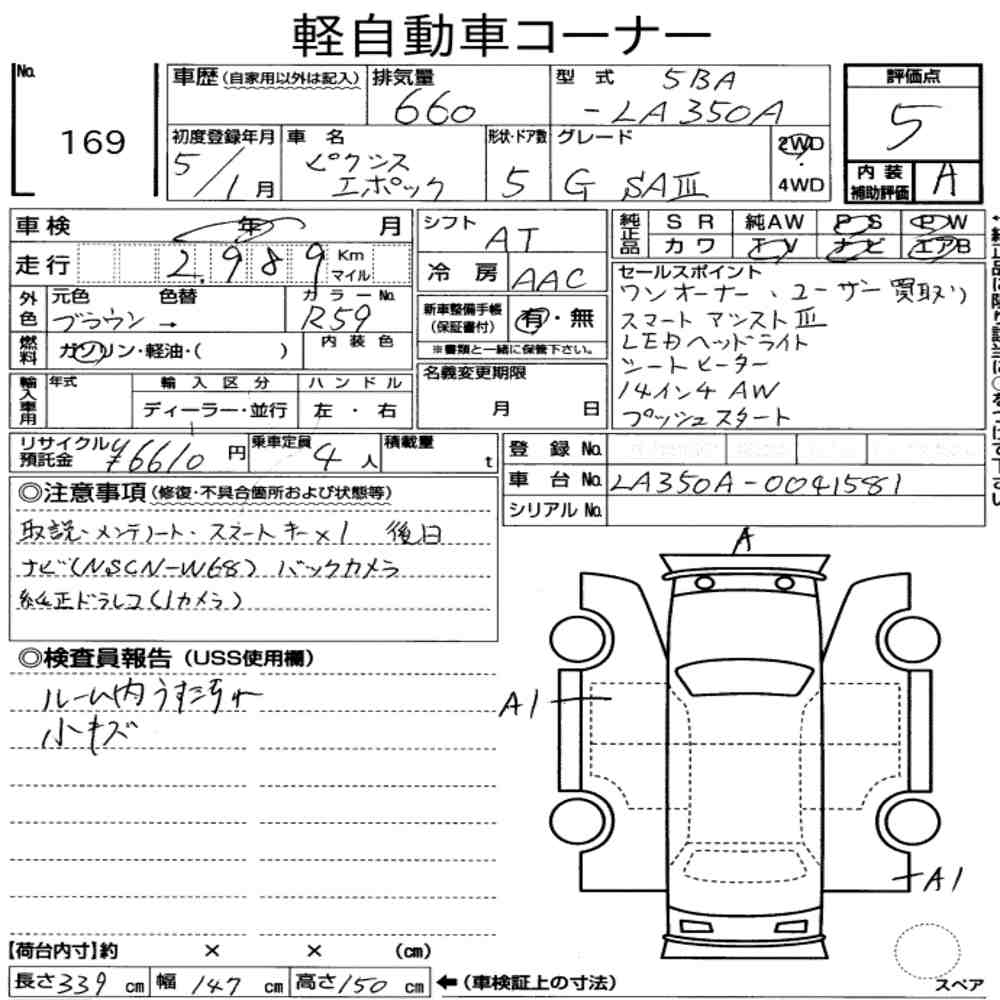 軽自動車コーナー
No. 169
車歴 (自家用以外は記入)
排気量 660
型式 5BA -LA350A
評価点 5
内装補助評価 A
初度登録年月 5/1月
車名 ピクシス エポック
形状・ドア数 5
グレード G SAⅢ
2WD
4WD
車検 年 月
走行 2,989 Km マイル
シフト AT
冷房 AAC
純正品 SR 純AW PS PW
カワ TV ナビ エアB
外色 元色 ブラウン → 色替
カラーNo. R59
内装色
燃料 ガソリン・軽油・( )
新車整備手帳 (保証書付) 有・無
※書類と一緒に保管下さい。
セールスポイント
ワンオーナー、ユーザー買取り
スマートアシストⅢ
LEDヘッドライト
シートヒーター
14インチAW
プッシュスタート
輸入車用 年式 輸入区分 ハンドル
ディーラー・並行 左・右
名義変更期限
月 日
リサイクル預託金 ¥6610円
乗車定員 4人
積載量 t
登録No.
車台No. LA350A-0041581
シリアルNo.
◎注意事項 (修復・不具合箇所および状態等)
取説・メンテノート・スマートキー×1 後日
ナビ(NSCN-W68) バックカメラ
純正ドラレコ(1カメラ)
◎検査員報告 (USS使用欄)
ルーム内うす汚れ
小キズ
A
A1
A1
【荷台内寸】約 × × (cm)
長さ339cm 幅147cm 高さ150cm ←(車検証上の寸法)
スペア